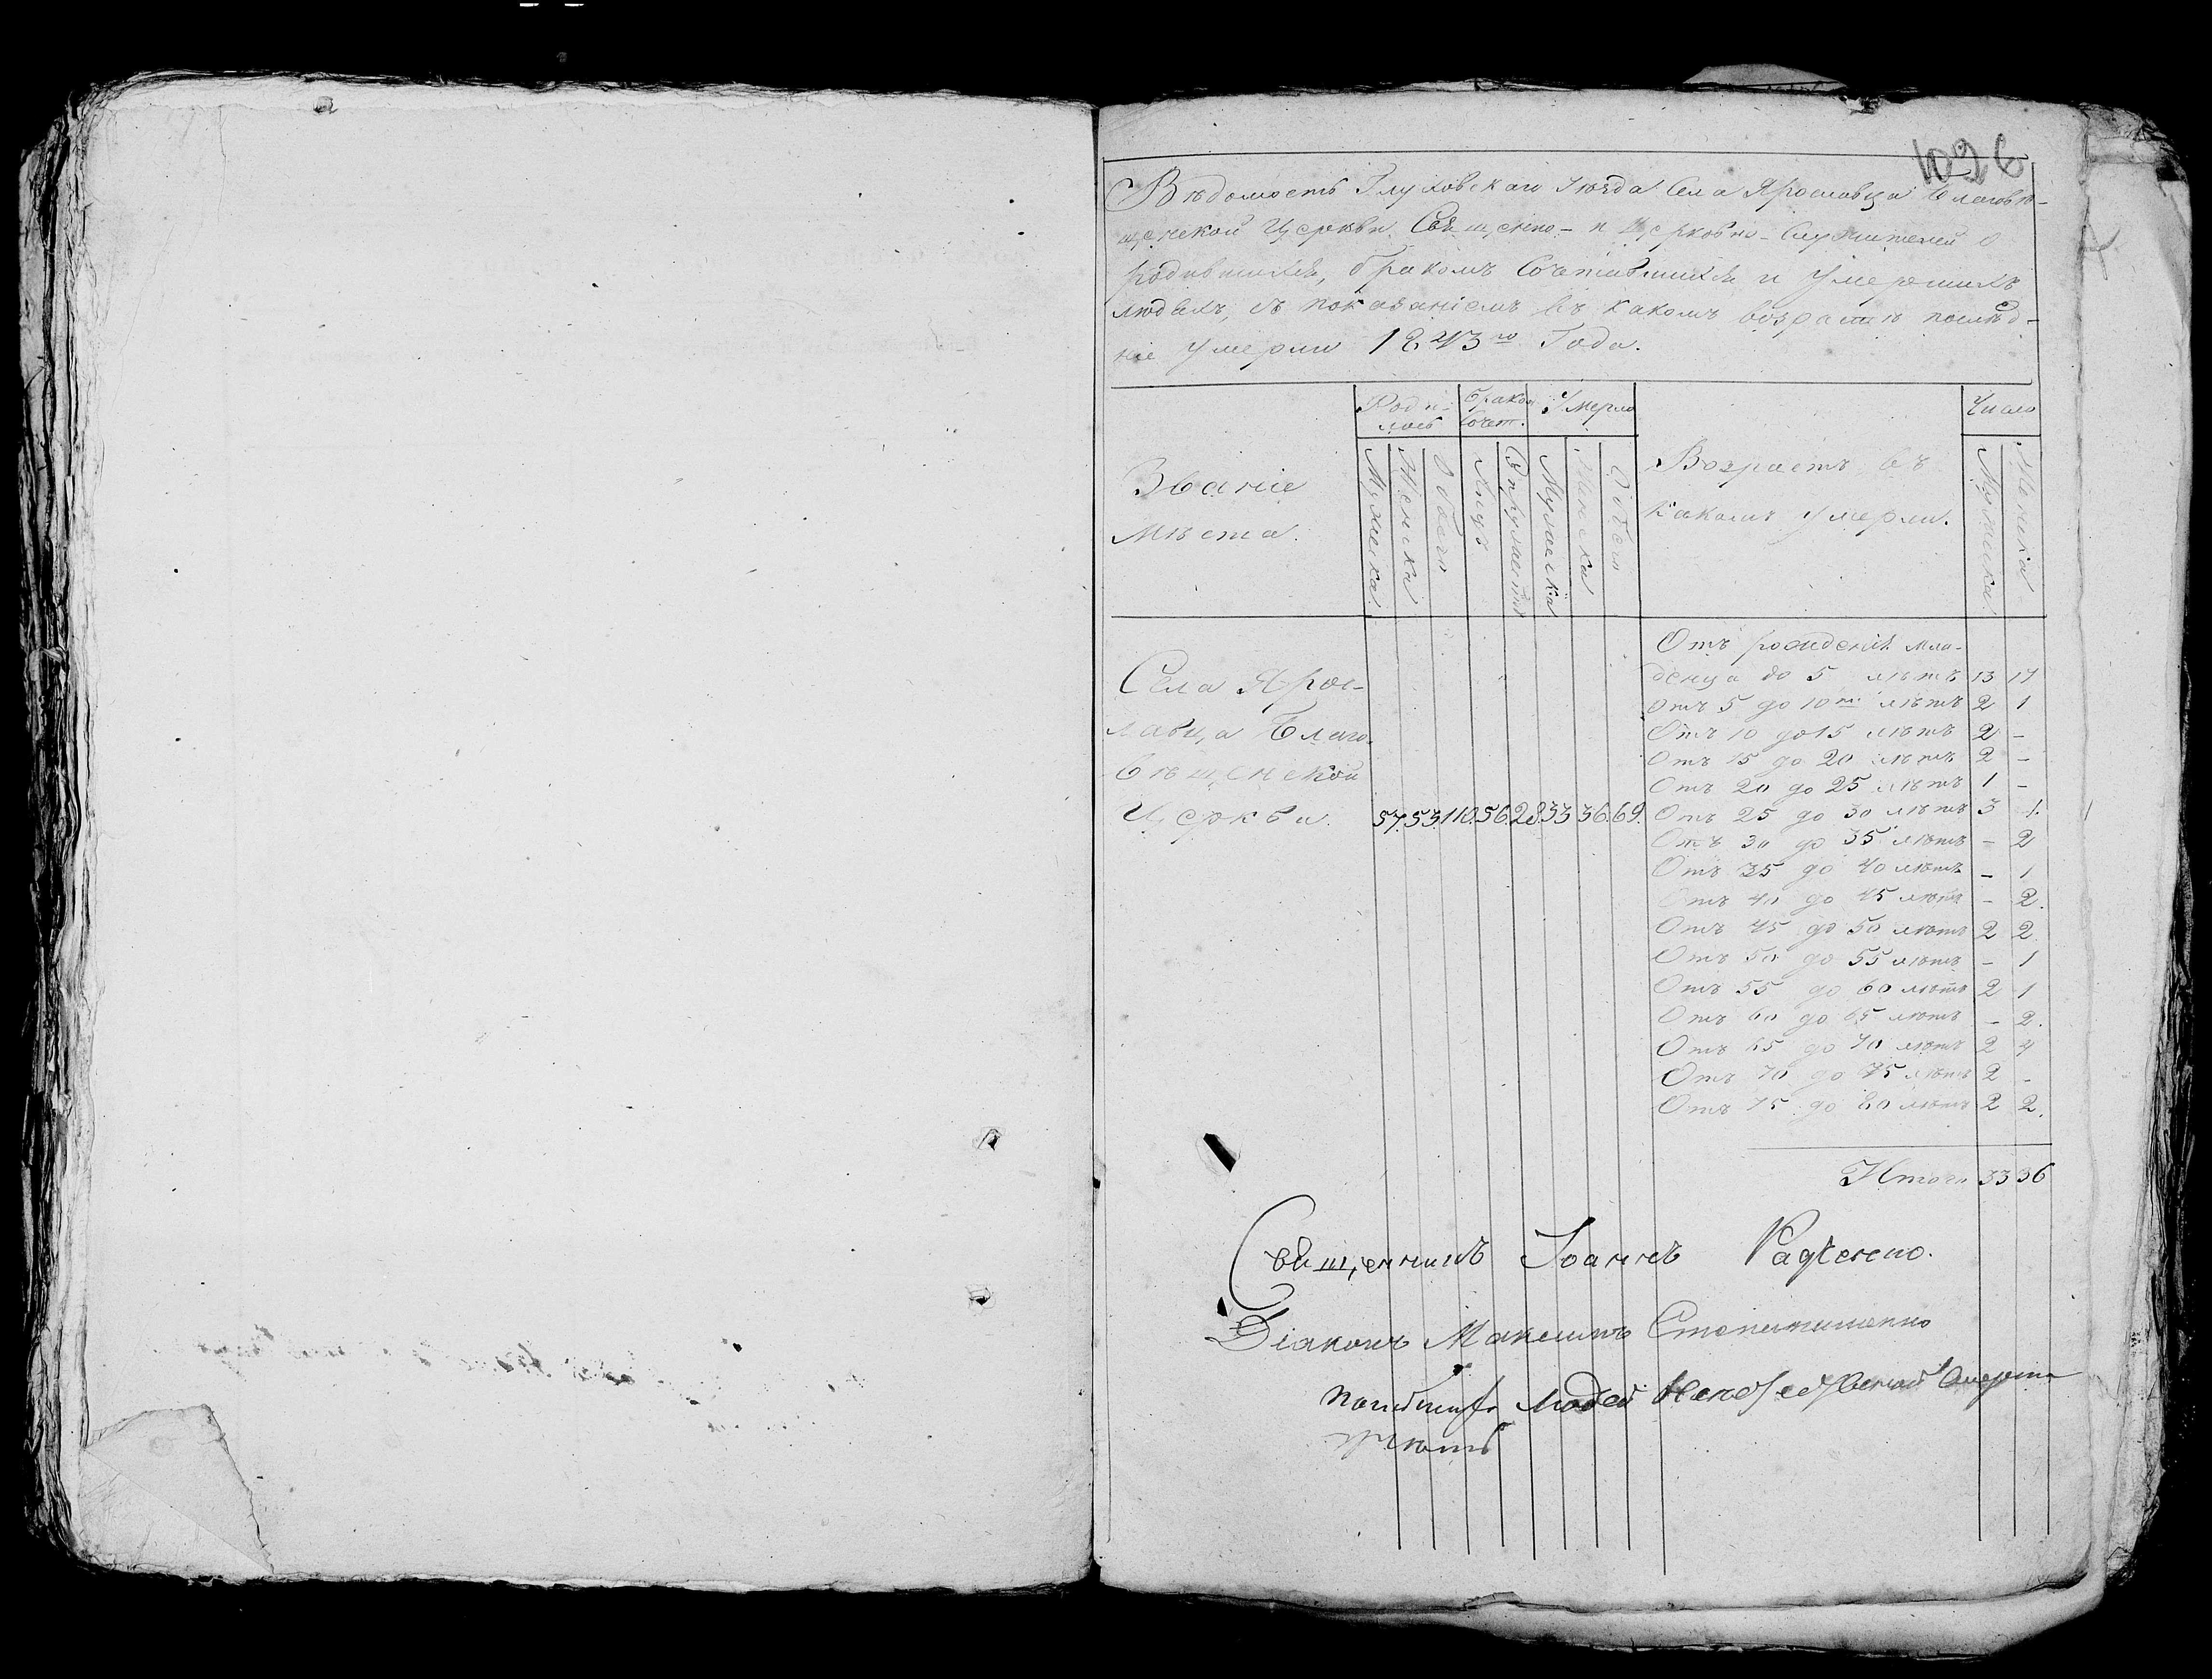 1026
Вѣдомость Глуховскаго Уѣзда Села Ярославца Благовѣ-
щенской Церкви Священно- и Церковно-Служителей о
родившихся, бракомъ Сочетавшихся и Умершихъ
людяхъ, съ показаніемъ въ какомъ возрастѣ послѣд-
ніе Умерли 1843го Года.
Роди- Бракомъ Умерло Число
лось Сочет.
Званіе
Мѣста.
Мужеска Женска Обоего Лицъ Супружествъ Мужеска Женска Обоего
Возрастъ въ
какомъ Умерли.
Мужска. Женска
Отъ рожденія мла-
денца до 5 лѣтъ 13 17
Отъ 5 до 10ти лѣтъ 2 1
Отъ 10 до 15 лѣтъ 2 -
Отъ 15 до 20 лѣтъ 2 -
Отъ 20 до 25 лѣтъ 1 -
Села Ярос-
лавца Благо-
вѣщенской
Церкви. 57. 53. 110. 56. 28. 33 36. 69. Отъ 25 до 30 лѣтъ 3 1.
Отъ 30 до 35 лѣтъ - 2
Отъ 35 до 40 лѣтъ - 1
Отъ 40 до 45 лѣтъ - 2.
Отъ 45 до 50 лѣтъ 2 2
Отъ 50 до 55 лѣтъ - 1
Отъ 55 до 60 лѣтъ 2 1
Отъ 60 до 65 лѣтъ - 2.
Отъ 65 до 70 лѣтъ 2 4
Отъ 70 до 75 лѣтъ 2 -
Отъ 75 до 80 лѣтъ 2 2.
Итого 33 36
Священникъ Іоаннъ Радченко.
Діаконъ Максимъ